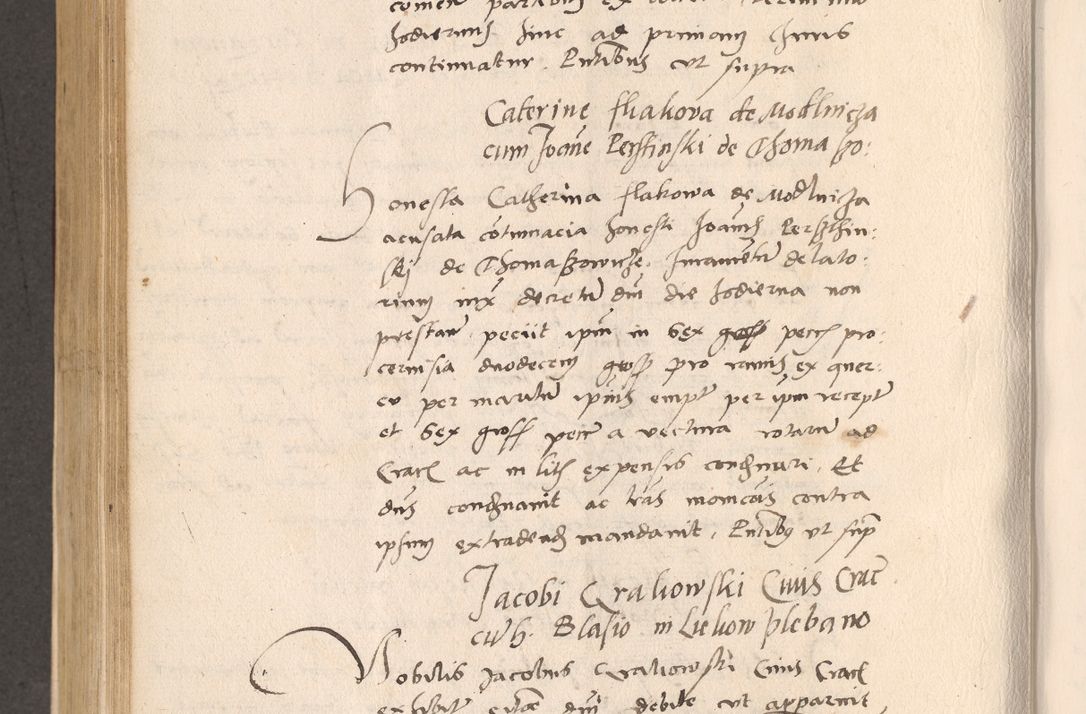 hodiernus hinc ad primam Juris
continuatur. Pntibus ut supra
Caterine flakova de Modlnicza
cum Joane Persstinski de Thomaszo:
Honesta Catherina flakowa de Modlnicza
acusata cotumacia honesti Joanis Persthin:
skj de Thomaszowicze. Juramentu delato:
rium iux decretu dni die hodierna non
prestan. peciit ipm in sex gross pecc pro
cervisia duodecem gross pro ex quer:
cu per maritu ipius empt per ipm recept
et sex gross pecc a vectura rotaru ad
Crac ac in litis expensis condemnari. Et
dns condemnavit ac lras monicois contra
ipsum extradendas mandavit. Pntibus ut sup
Jacobi Graliowski Civis Crac
cum h. Blasio in Liekow plebano
Nobilis Jacobus Graliowski Civis Crac
exhibit dni debite ut apparuit